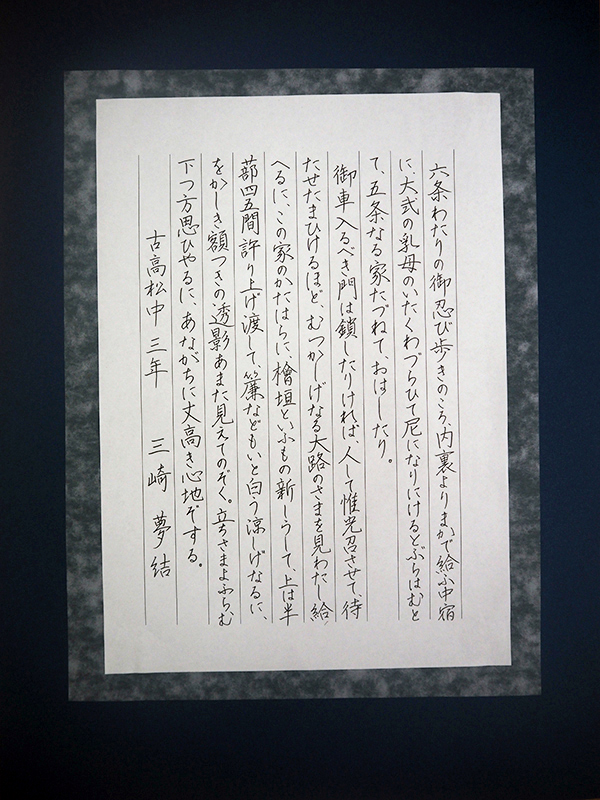 六条わたりの御忍び歩きのころ、内裏よりまかで給ふ中宿
に、大弐の乳母のいたくわづらひて尼になりにけるとぶらはむと
て、五条なる家たづねて、おはしたり。
御車入るべき門は鎖したりければ、人して惟光召させて、待
たせたまひけるほど、むつかしげなる大路のさまを見わたし給
へるに、この家のかたはらに、檜垣といふもの新しうして、上は半
蔀四五間許り上げ渡して、簾などもいと白う涼しげなるに、
をかしき額つきの透影あまた見えてのぞく。立ちさまよふらむ
下つ方思ひやるに、あながちに丈高き心地ぞする。
古高松中 三年 三崎 夢結